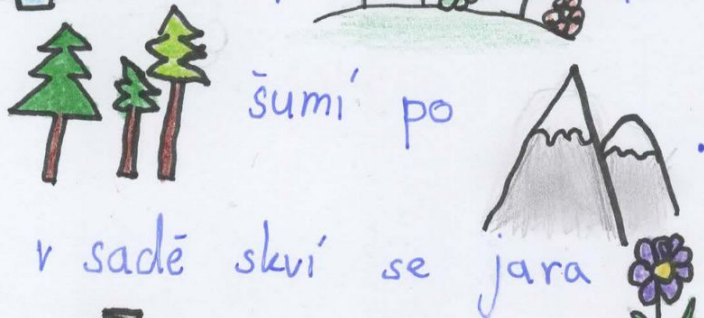 šumí po
v sadě skví se jara